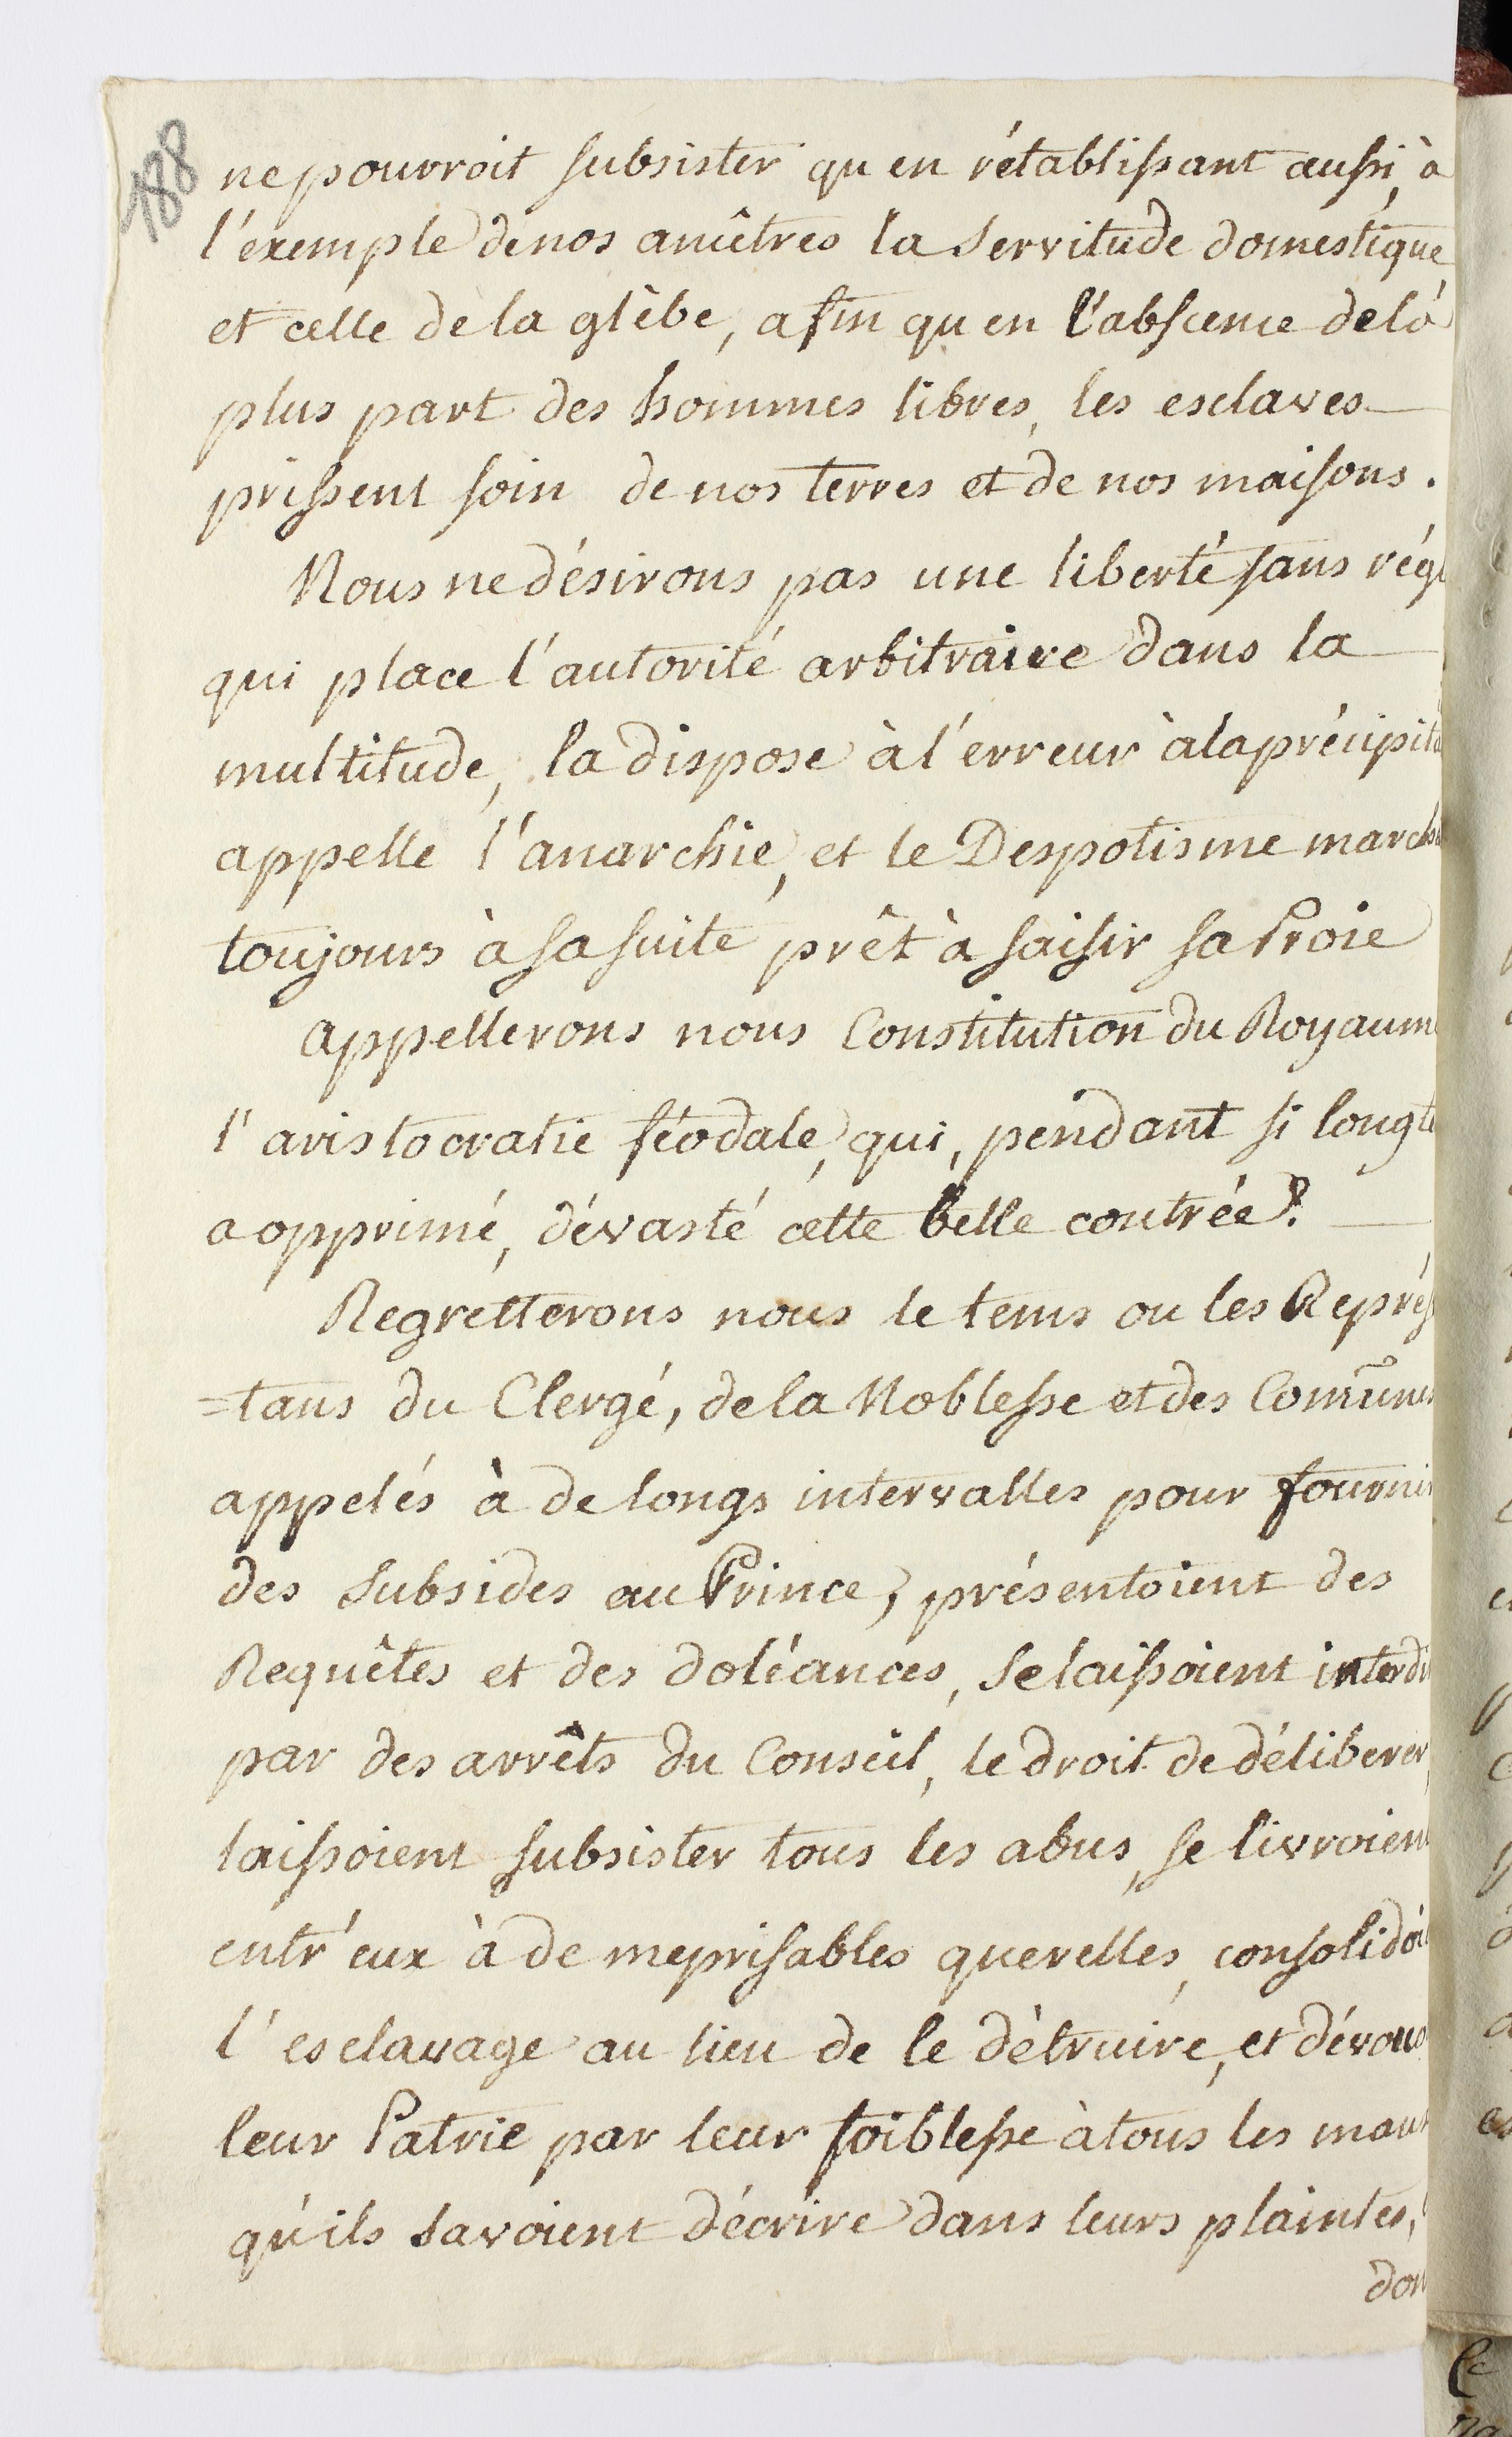 188
ne pourroit subsister qu'en rétablissant aussi, à
l'exemple de nos ancêtres la servitude domestique
et celle de la glèbe, afin qu'en l'abscence de la
plus part des hommes libres, les esclaves
prissent soin de nos terres et de nos maisons.
Nous ne désirons pas une liberté sans règl
qui place l'autorité arbitraire dans la
multitude, la dispose à l'erreur à la précipita
appelle l'anarchie, et le Despotisme marche
toujours à sa suite prêt à saisir sa Proie
Appellerons nous Constitution du Royaume
l'aristocratie féodale, qui, pendant si longte
a opprimé, dévasté cette belle contrée?
Regretterons nous le tems ou les Représ
=tans du Clergé, de la Noblesse et des Com̃unes
appelés à de longs intervalles pour fournir
des subsides au Prince, présentoient des
Requêtes et des doléances, se laissoient interdi
par des arrêts du Conseil, le droit de déliberer,
laissoient subsister tous les abus, se livroient
entr'eux à de meprisables querelles, consolidoi
l'esclavage au lieu de le détruire, et dévouo
leur Patrie par leur foiblesse à tous les maux
qu'ils savoient décrire dans leurs plaintes,
don